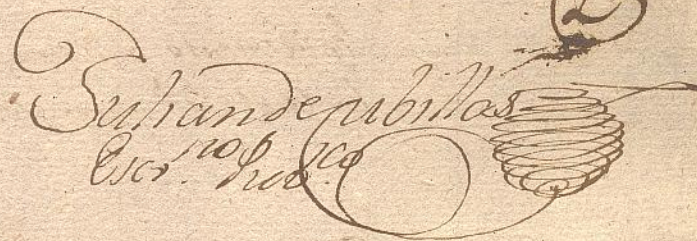 Julian de cubillos
Escr.no pubco